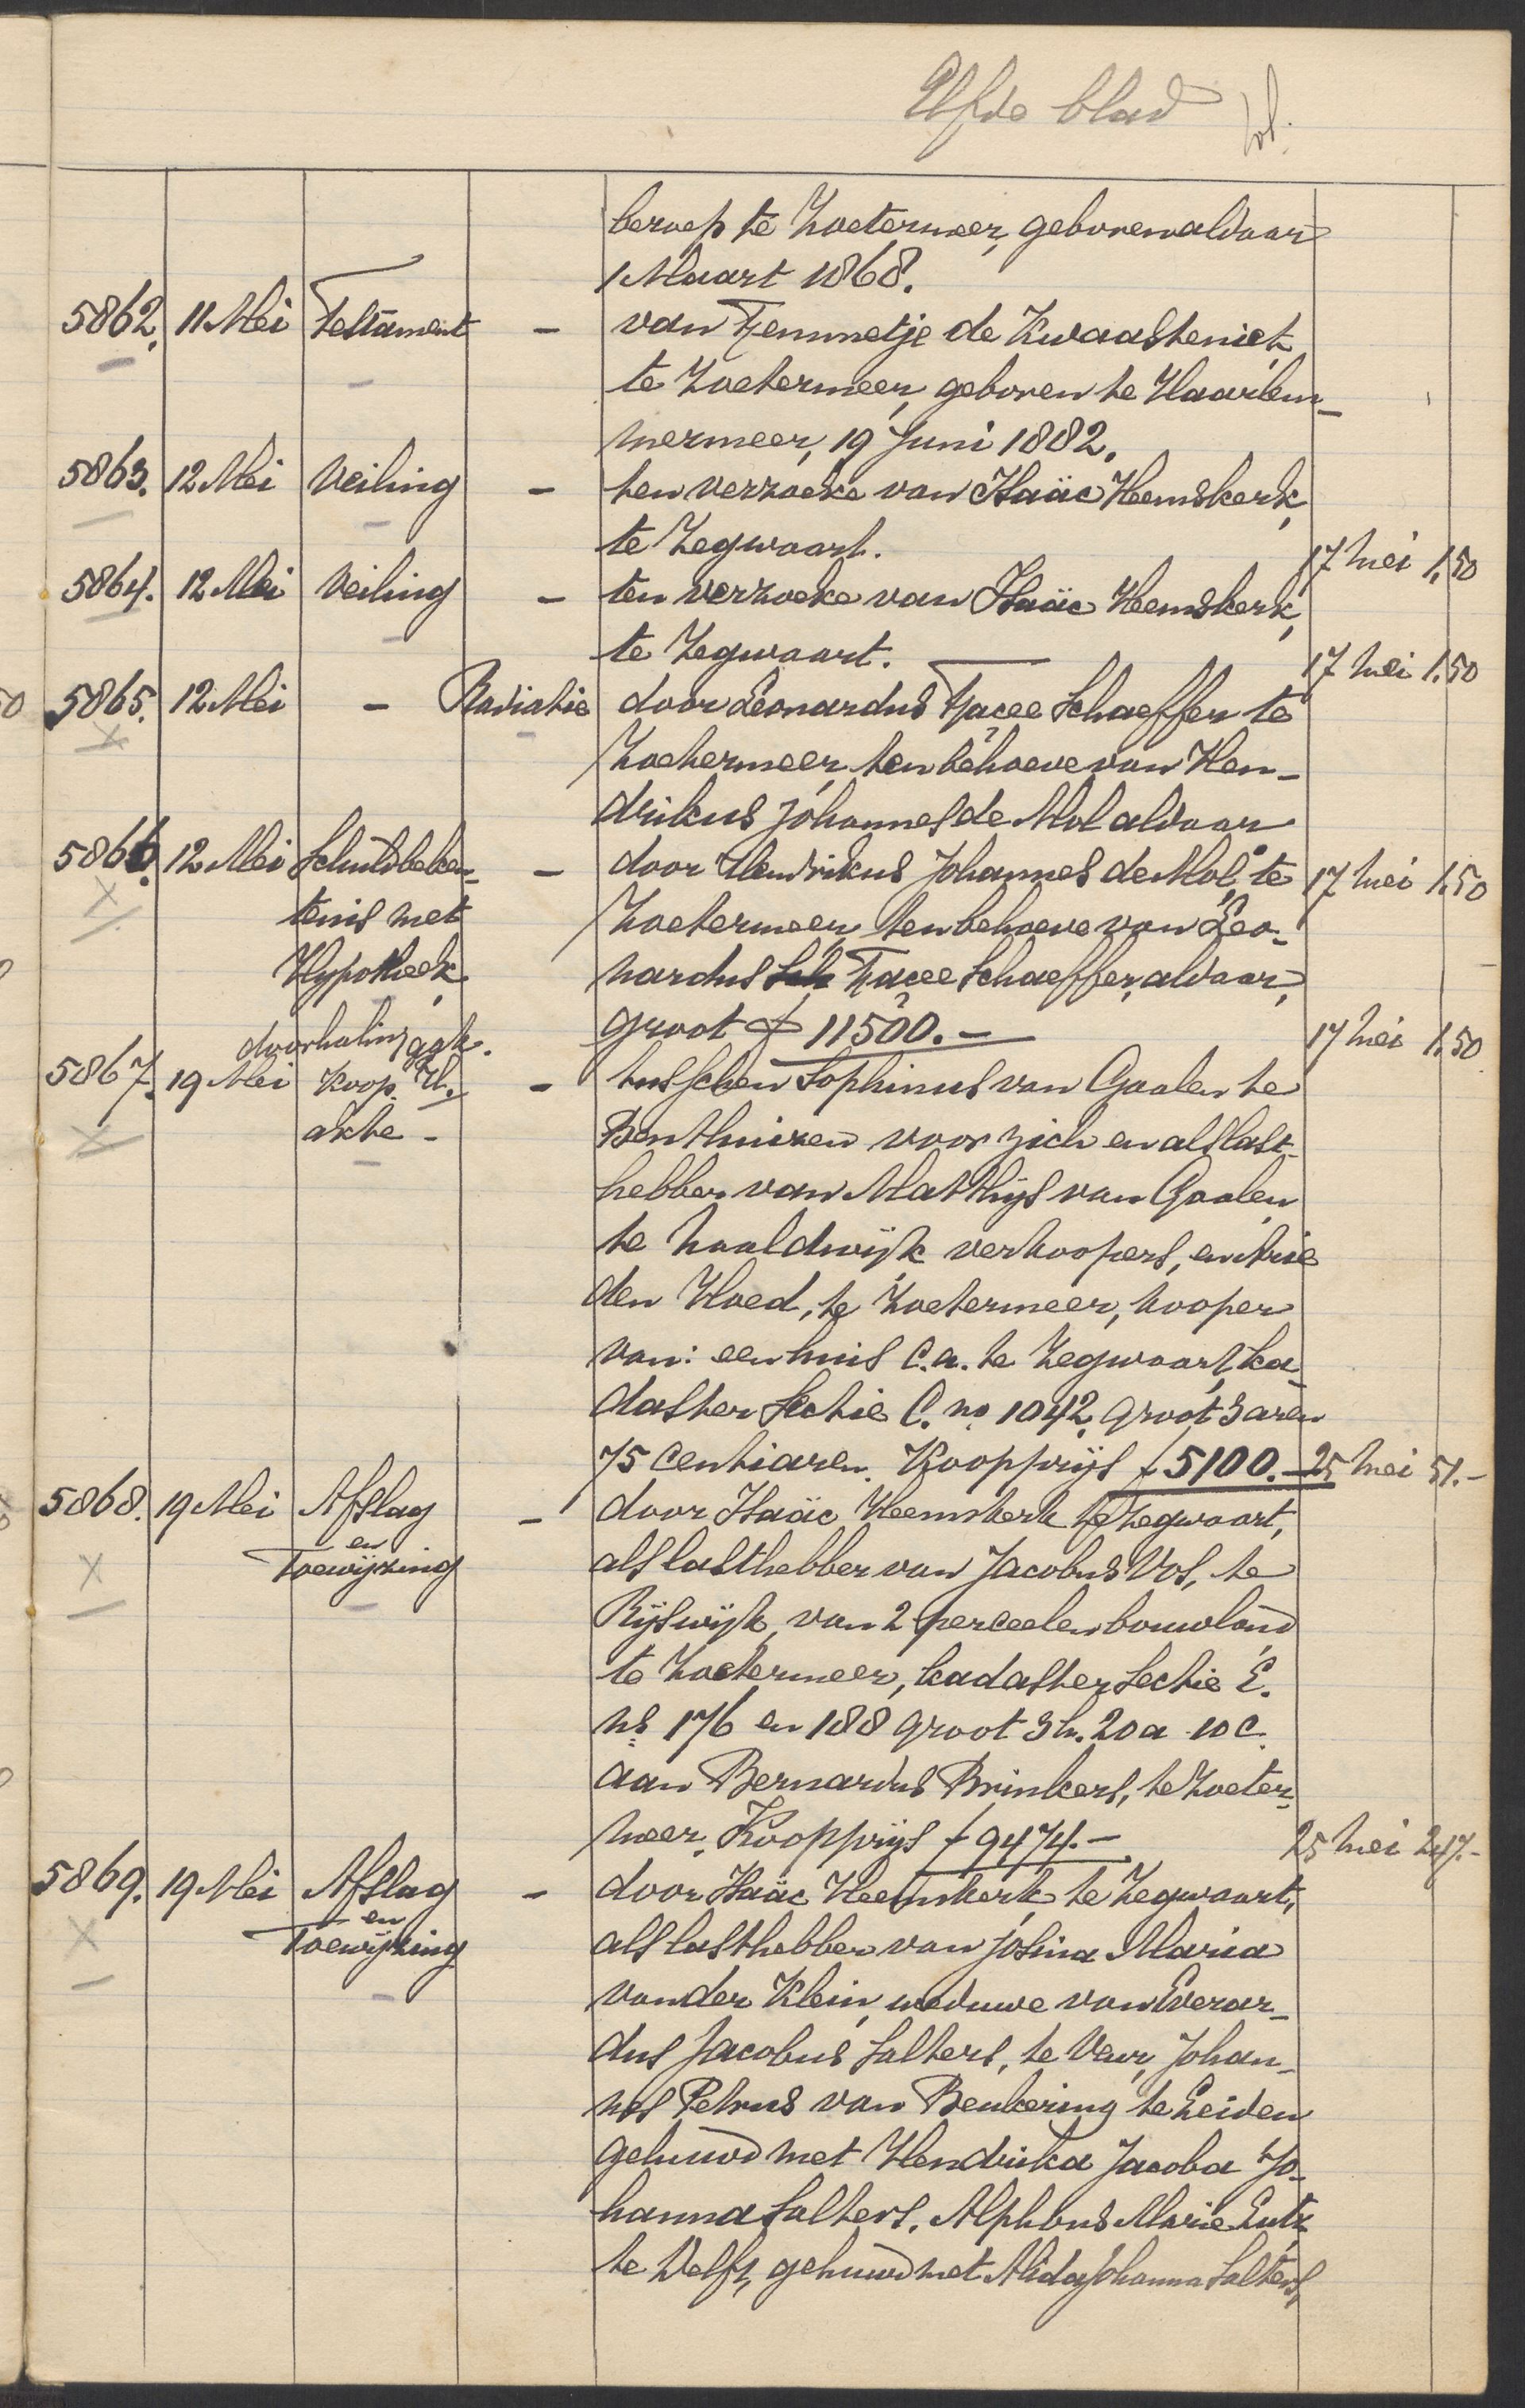 Elfde blad
beroep te Zoetermeer, geboren aldaar
1 Maart 1868.
5862. 11 Mei Testament - van Jemmetje de Kwaasteniet,
te Zoetermeer, geboren te Haarlem-
mermeer, 19 Juni 1882.
5863. 12 Mei Veiling - ten verzoeke van Isaäc Heemskerk,
te Zegwaart. 17 Mei 1.50
5864. 12 Mei Veiling - ten verzoeke van Isaäc Hemskerk,
te Zegwaart. 17 Mei 1.50
5865. 12 Mei - Radiatie door Leonardus Tjacee Schaeffer te
Zoetermeer, ten behoeve van Hen-
drikus Johannes de Mol aldaar
5866. 12 Mei Schuldbeken- - door Hendrikus Johannes de Mol, te 17 Mei 1.50
tenis met Zoetermeer, ten behoeve van Leo-
Hypotheek, nardus Tjacee Schaeffer, aldaar,
doorhaling gek. groot f 11500.- 17 Mei 1.50
5867. 19 Mei Koop H. - tusschen Sophinus van Gaalen te
akte - Benthuizen voor zich en als last-
hebber van Matthijs van Gaalen,
te Naaldwijk verkoopers, en Arie
den Hoed, te Zoetermeer, kooper
van: een huis c.a. te Zegwaart, ka-
daster Sectie C. no 1042, groot 3 aren
75 centiaren. Koopprijs f 5100.- 25 Mei 51.-
5868. 19 Mei Afslag - door Isaäc Heemskerk te Zegwaart,
en
Toewijzing als lasthebber van Jacobus Vos, te
Rijswijk, van 2 perceelen bouwland
te Zoetermeer, kadaster Sectie E.
ns 176 en 188 groot 3 h. 20 a 10 c.
aan Bernardus Brinkers, te Zoeter-
meer. Koopprijs f 9474.- 25 Mei 247.-
5869. 19 Mei Afslag - door Isaäc Heemskerk te Zegwaart,
en
Toewijzing als lasthebber van Josina Maria
van der Klein, weduwe van Everar-
dus Jacobus Salters, te Veur, Johan-
nes Petrus van Beukering te Leiden
gehuwd met Hendrika Jacoba Jo-
hanna Salters, Alphons Marie Lutz
te Delft, gehuwd met Alida Johanna Salters,